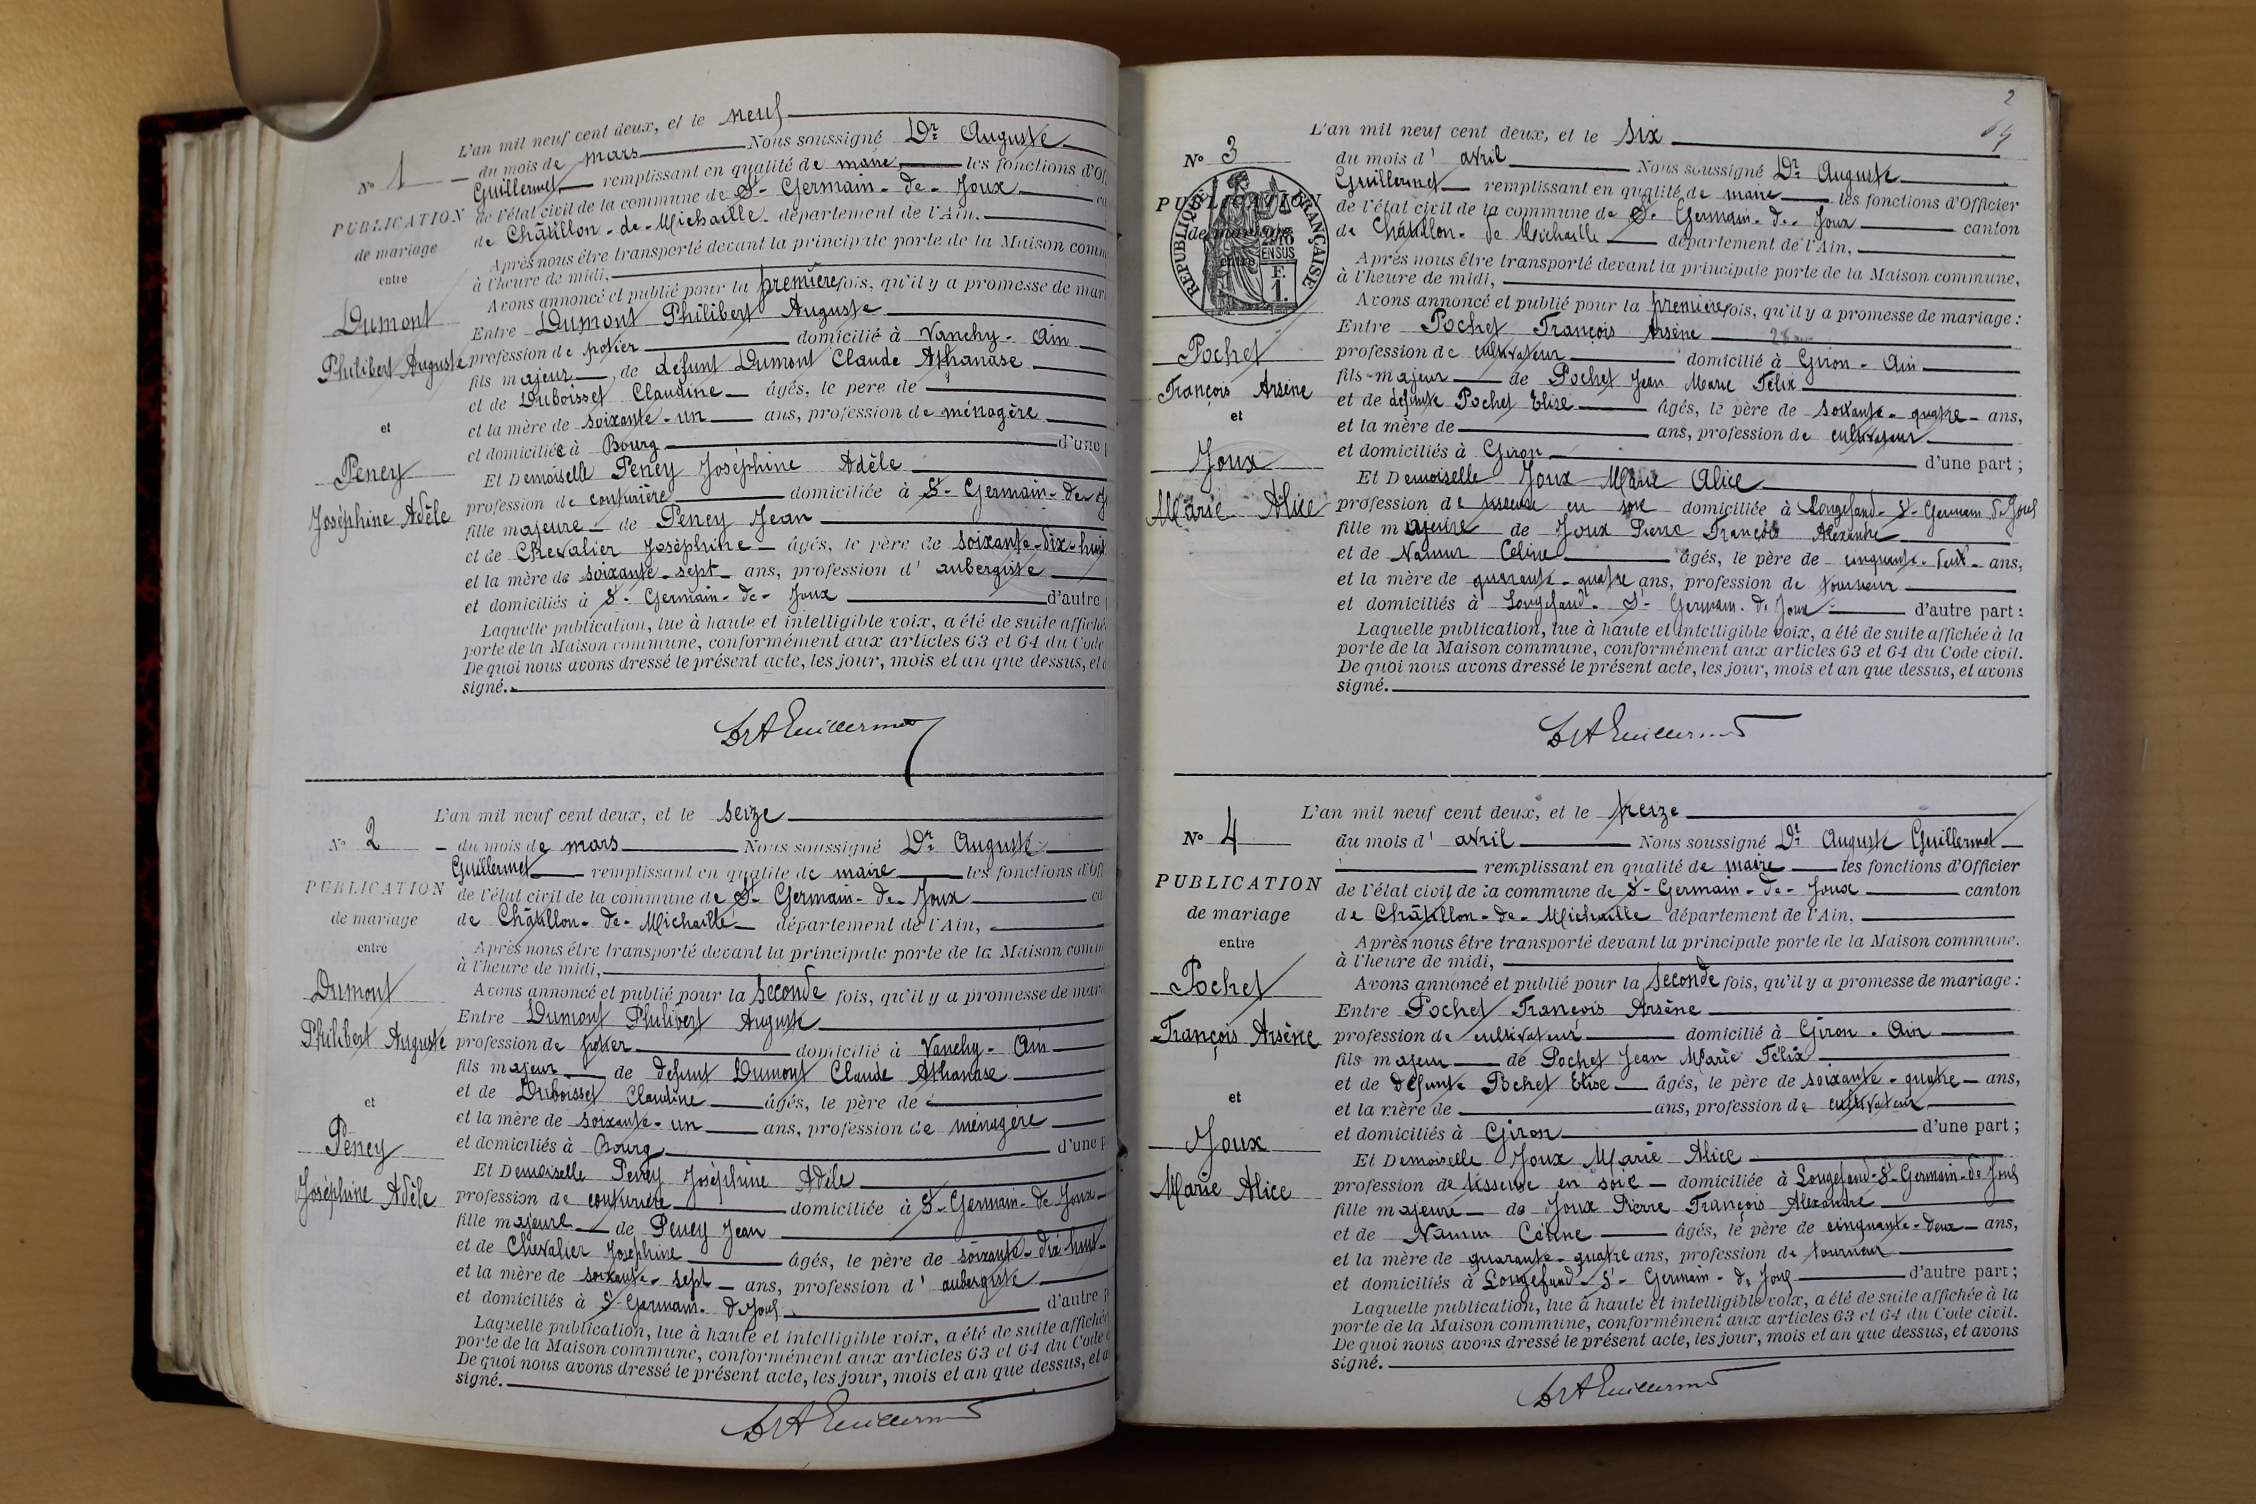 L'an mil neuf cent deux, et le neuf
Nº 1 du mois de mars Nous soussigné Dr Auguste
Guillermet remplissant en qualité de maire les fonctions d'Of
PUBLICATION de l'état civil de la commune de St-Germain-de-Joux
de mariage de Châtillon-de-Michaille département de l'Ain,
entre Après nous être transporté devant la principale porte de la Maison comm
à l'heure de midi,
Avons annoncé et publié pour la première fois, qu'il y a promesse de mar
Dumont Entre Dumont Philibert Auguste
Philibert Auguste profession de potier domicilié à Vanchy-Ain
fils majeur de défunt Dumont Claude Athanase
et de Duboisset Claudine âgés, le père de
et et la mère de soixante-un ans, profession de ménagère
et domiciliée à Bourg d'une p
Peney Et Demoiselle Peney Joséphine Adèle
Joséphine Adèle profession de couturière domiciliée à St-Germain-de-J
fille majeure de Peney Jean
et de Chevalier Joséphine âgés, le père de soixante-dix-huit
et la mère de soixante-sept ans, profession d'aubergiste
et domiciliés à St-Germain-de-Joux d'autre p
Laquelle publication, lue à haute et intelligible voix, a été de suite affichée
porte de la Maison commune, conformément aux articles 63 et 64 du Code
De quoi nous avons dressé le présent acte, les jour, mois et an que dessus, et a
signé.
Dr A Guillermet
L'an mil neuf cent deux, et le seize
Nº 2 du mois de mars Nous soussigné Dr Auguste
Guillermet remplissant en qualité de maire les fonctions d'Off
PUBLICATION de l'état civil de la commune de St-Germain-de-Joux ca
de mariage de Châtillon-de-Michaille département de l'Ain,
entre Après nous être transporté devant la principale porte de la Maison comm
à l'heure de midi,
Dumont Avons annoncé et publié pour la seconde fois, qu'il y a promesse de mar
Entre Dumont Philibert Auguste
Philibert Auguste profession de potier domicilié à Vanchy-Ain
fils majeur de défunt Dumont Claude Athanase
et de Duboisset Claudine âgés, le père de
et et la mère de soixante-un ans, profession de ménagère
Peney et domiciliés à Bourg d'une p
Et Demoiselle Peney Joséphine Adèle
Joséphine Adèle profession de couturière domiciliée à St-Germain-de-Joux
fille majeure de Peney Jean
et de Chevalier Joséphine âgés, le père de soixante-dix-huit
et la mère de soixante-sept ans, profession d'aubergiste
et domiciliés à St-Germain-de-Joux d'autre p
Laquelle publication, lue à haute et intelligible voix, a été de suite affichée
porte de la Maison commune, conformément aux articles 63 et 64 du Code
De quoi nous avons dressé le présent acte, les jour, mois et an que dessus, et a
signé.
Dr A Guillermet
2
L'an mil neuf cent deux, et le six
Nº 3 du mois d'avril Nous soussigné Dr Auguste
Guillermet remplissant en qualité de maire les fonctions d'Officier
PUBLICATION de l'état civil de la commune de St-Germain-de-Joux canton
de mariage de Châtillon-de Michaille département de l'Ain,
RÉPUBLIQUE FRANÇAISE
entre Après nous être transporté devant la principale porte de la Maison commune,
à l'heure de midi,
Avons annoncé et publié pour la première fois, qu'il y a promesse de mariage :
Entre Pochet François Arsène
Pochet profession de cultivateur domicilié à Giron-Ain
François Arsène fils majeur de Pochet Jean Marie Félix
et de défunte Pochet Elise âgés, le père de soixante-quatre ans,
et et la mère de ans, profession de cultivateur
Joux et domiciliés à Giron d'une part ;
Et Demoiselle Joux Marie Alice
Marie Alice profession de tisseuse en soie domiciliée à Longefand-St-Germain de Joux
fille majeure de Joux Pierre François Alexandre
et de Namur Céline âgés, le père de cinquante-deux ans,
et la mère de quarante-quatre ans, profession de tourneur
et domiciliés à Longefand-St-Germain-de Joux d'autre part :
Laquelle publication, lue à haute et intelligible voix, a été de suite affichée à la
porte de la Maison commune, conformément aux articles 63 et 64 du Code civil.
De quoi nous avons dressé le présent acte, les jour, mois et an que dessus, et avons
signé.
Dr A Guillermet
L'an mil neuf cent deux, et le treize
Nº 4 du mois d'avril Nous soussigné Dr Auguste Guillermet
remplissant en qualité de maire les fonctions d'Officier
PUBLICATION de l'état civil de la commune de St-Germain-de-Joux canton
de mariage de Châtillon-de-Michaille département de l'Ain,
entre Après nous être transporté devant la principale porte de la Maison commune.
à l'heure de midi,
Pochet Avons annoncé et publié pour la seconde fois, qu'il y a promesse de mariage :
Entre Pochet François Arsène
François Arsène profession de cultivateur domicilié à Giron-Ain
fils majeur de Pochet Jean Marie Félix
et de défunte Pochet Elise âgés, le père de soixante-quatre ans,
et et la mère de ans, profession de cultivateur
Joux et domiciliés à Giron d'une part ;
Et Demoiselle Joux Marie Alice
Marie Alice profession de tisseuse en soie domiciliée à Longefand-St-Germain-de Joux
fille majeure de Joux Pierre François Alexandre
et de Namur Céline âgés, le père de cinquante-deux ans,
et la mère de quarante-quatre ans, profession de tourneur
et domiciliés à Longefand-St-Germain-de Joux d'autre part ;
Laquelle publication, lue à haute et intelligible voix, a été de suite affichée à la
porte de la Maison commune, conformément aux articles 63 et 64 du Code civil.
De quoi nous avons dressé le présent acte, les jour, mois et an que dessus, et avons
signé.
Dr A Guillermet